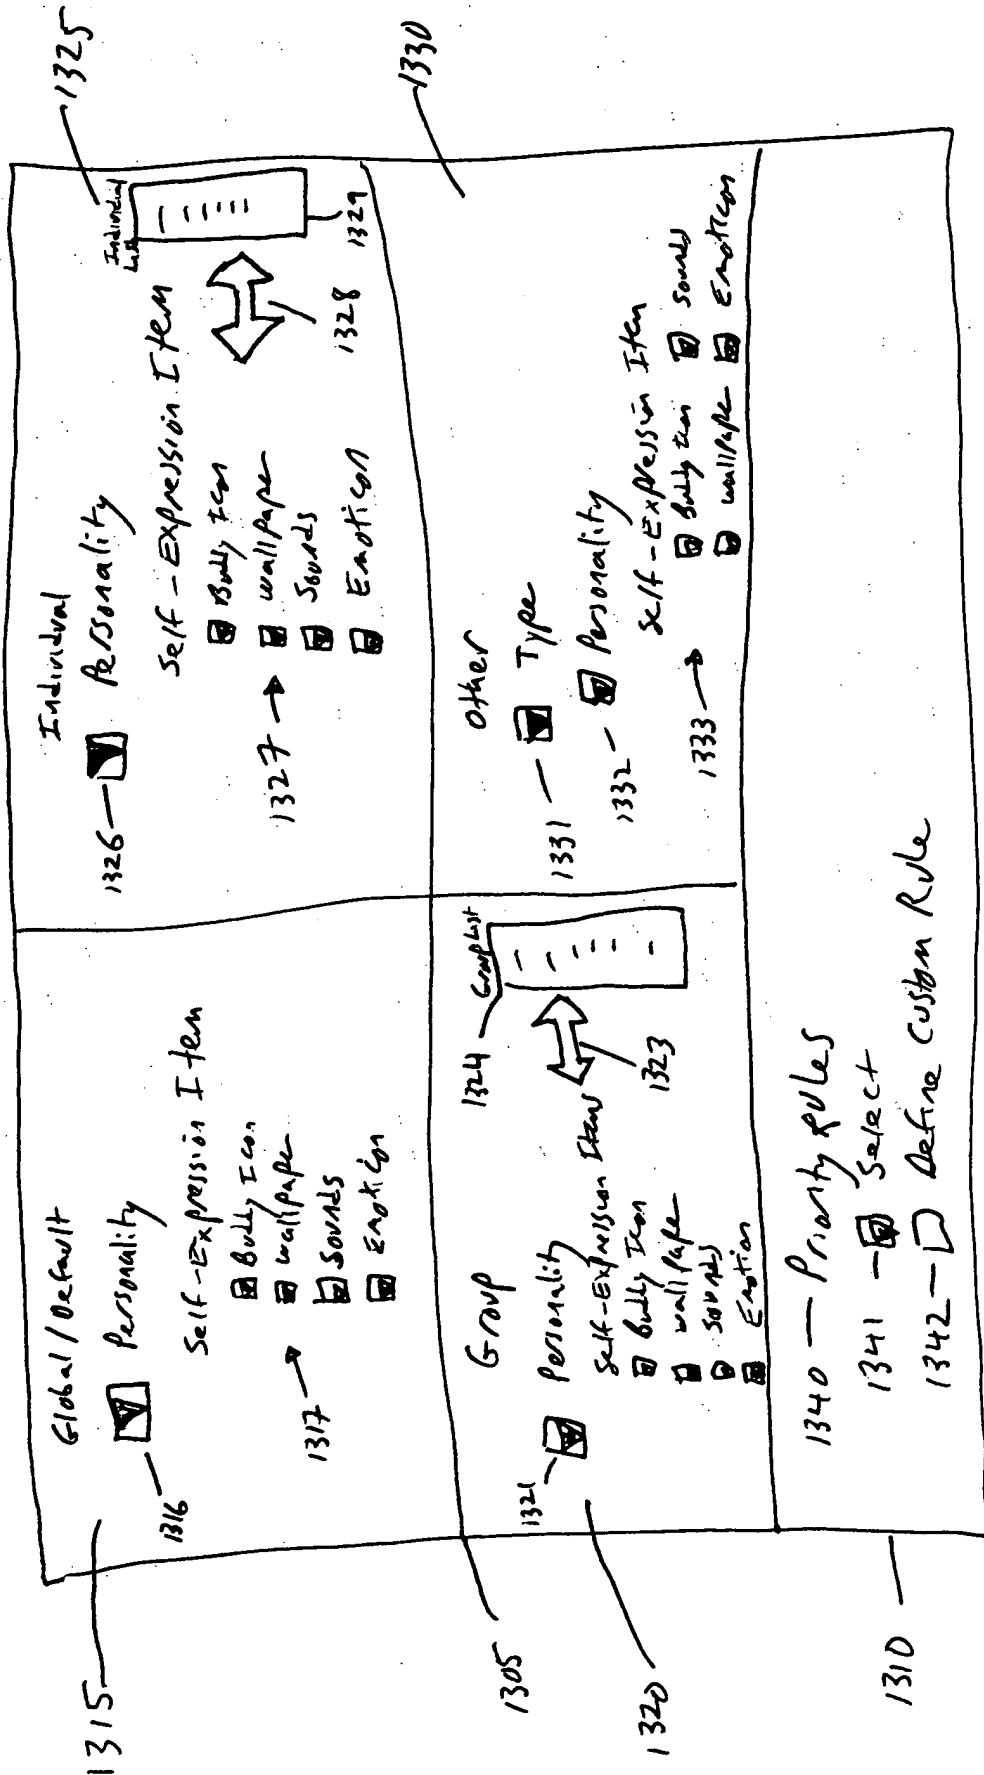 1315
Global/Default
1316
Personality
Self-Expression Item
1317
Buddy Icon
wallpaper
Sounds
Emoticon
1325
Individual
1326
Personality
Individual
List
Self-Expression Item
1327
Buddy Icon
wallpaper
Sounds
Emoticon
1328
1329
1305
1320
Group
1321
Personality
Self-Expression Items
Buddy Icon
wallpaper
Sounds
Emotion
1324
Group List
1323
1330
Other
1331
Type
1332
Personality
Self-Expression Item
1333
Buddy Icon
Sounds
wallpaper
Emoticon
1310
1340 — Priority Rules
1341 — Select
1342 — Define Custom Rule